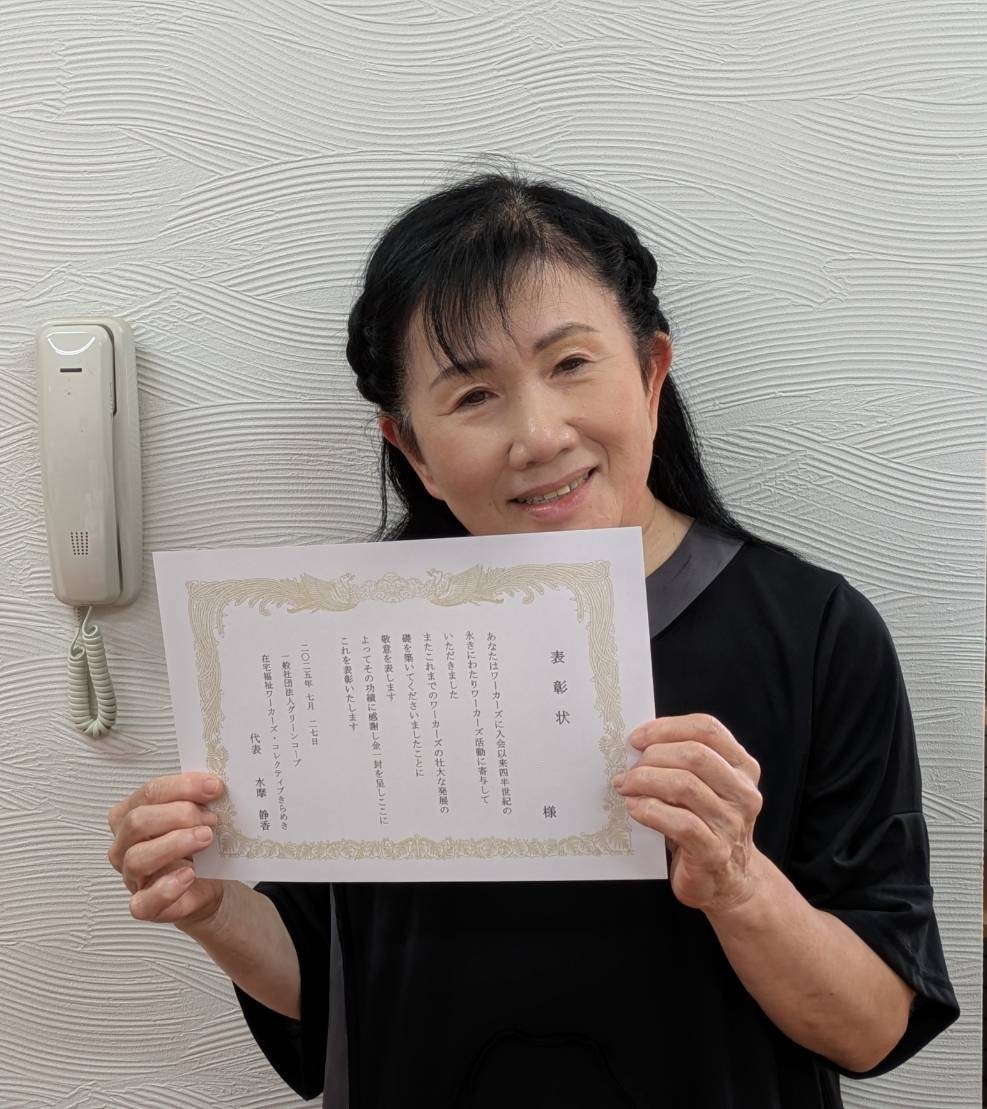 表彰状
様
あなたはワーカーズに入会以来四半世紀の
永きにわたりワーカーズ活動に寄与して
いただきました
またこれまでのワーカーズの壮大な発展の
礎を築いてくださいましたことに
敬意を表します
よってその功績に感謝し金一封を呈しここに
これを表彰いたします
二〇二五年 七月 二七日
一般社団法人グリーンコープ
在宅福祉ワーカーズ・コレクティブきらめき
代表 水摩 静香